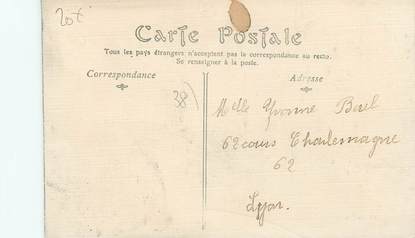 20t
Carte Postale
Tous les pays étrangers n'acceptent pas la correspondance au recto.
Se renseigner à la poste.
Correspondance
Adresse
38)
Melle Yvonne
62 cours Charlemagne
62
Lyon.